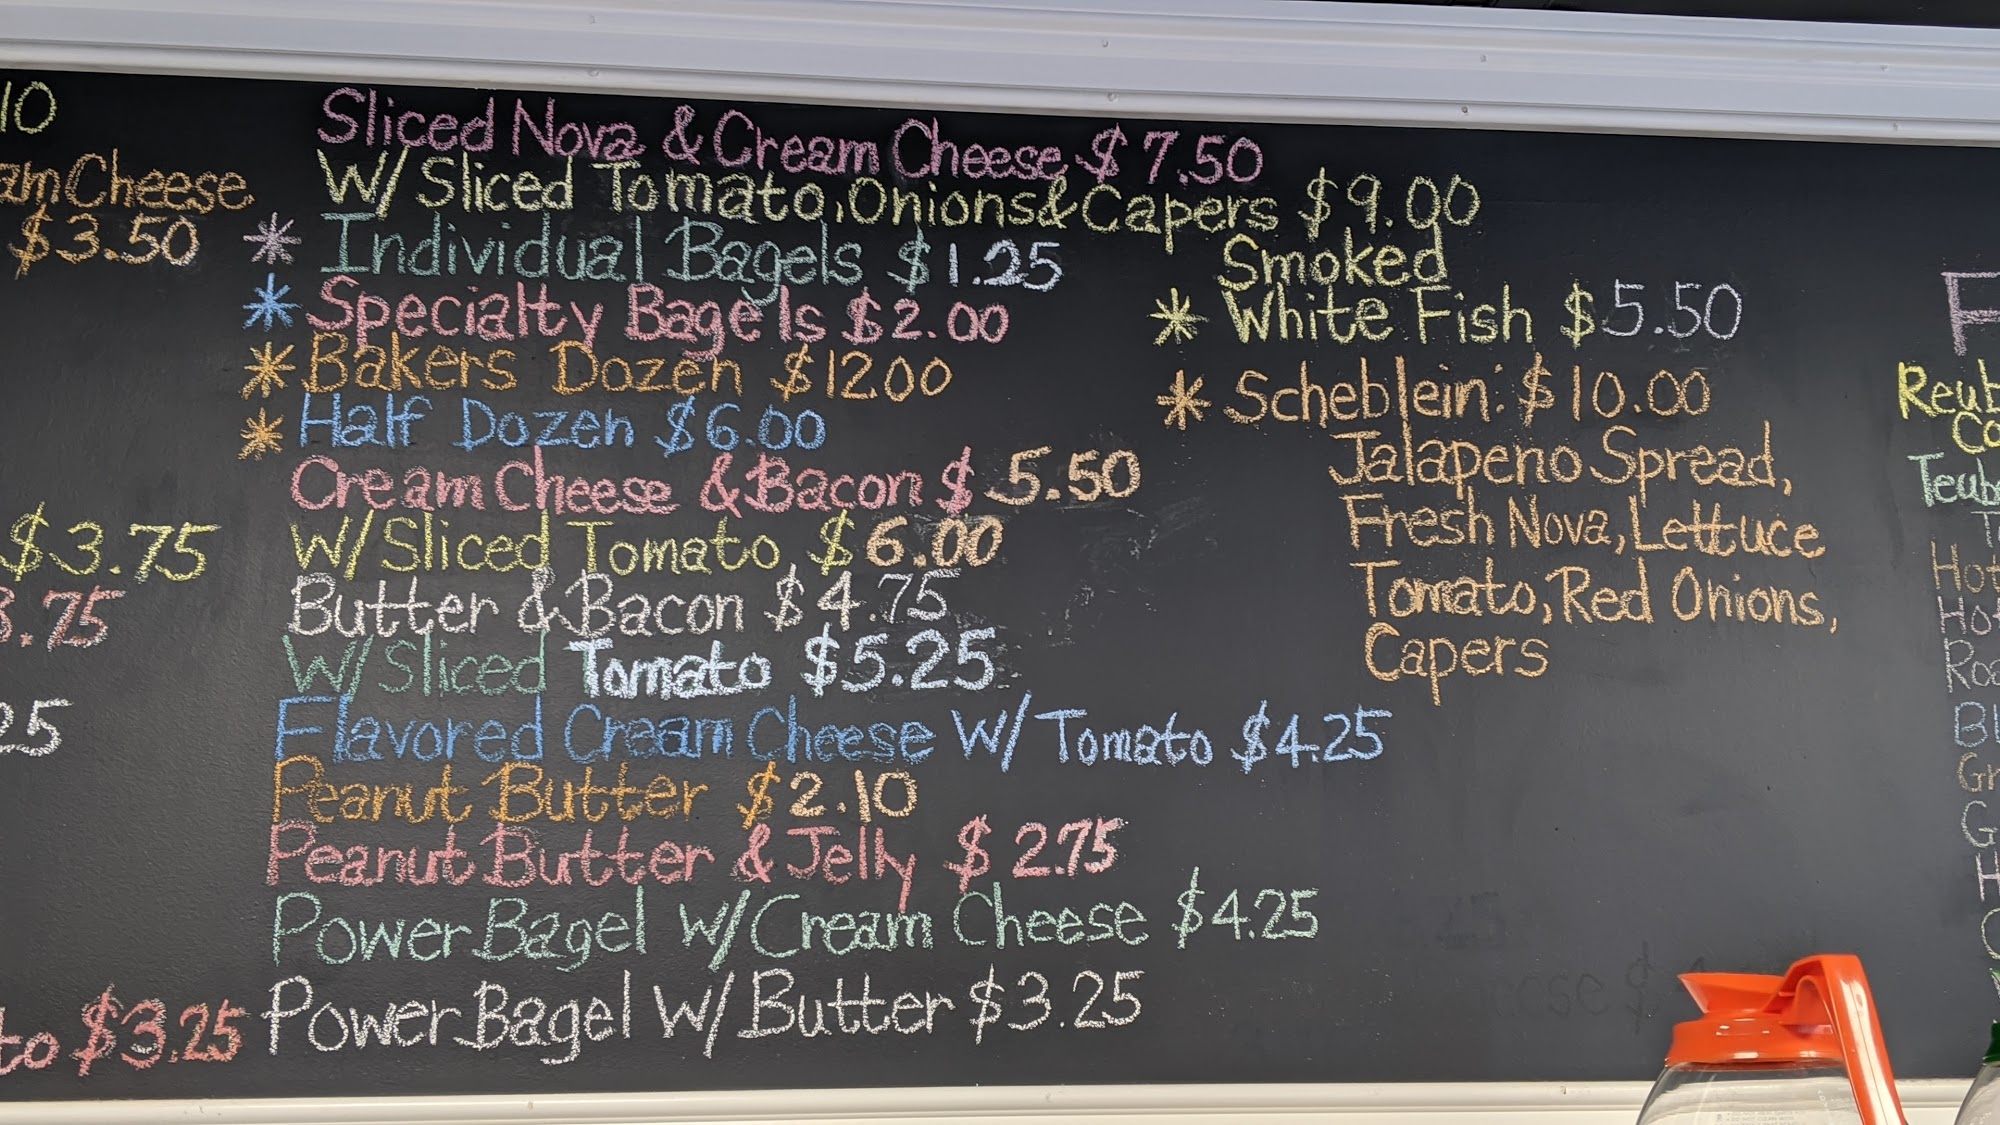 10
Cheese
$3.50
$3.75
Sliced Nova & Cream Cheese $7.50
W/Sliced Tomato, Onions & Capers $9.00
* Individual Bagels $1.25
* Specialty Bagels $2.00
* Bakers Dozen $1200
* Half Dozen $6.00
Cream Cheese & Bacon $5.50
W/Sliced Tomato $6.00
Butter & Bacon $4.75
W/Sliced Tomato $5.25
Flavored Cream Cheese W/ Tomato $4.25
Peanut Butter $2.10
Peanut Butter & Jelly $2.75
Power Bagel W/Cream Cheese $4.25
$3.25
Power Bagel W/ Butter $3.25
Smoked
* White Fish $5.50
* Scheblein: $10.00
Jalapeno Spread,
Fresh Nova, Lettuce
Tomato, Red Onions,
Capers